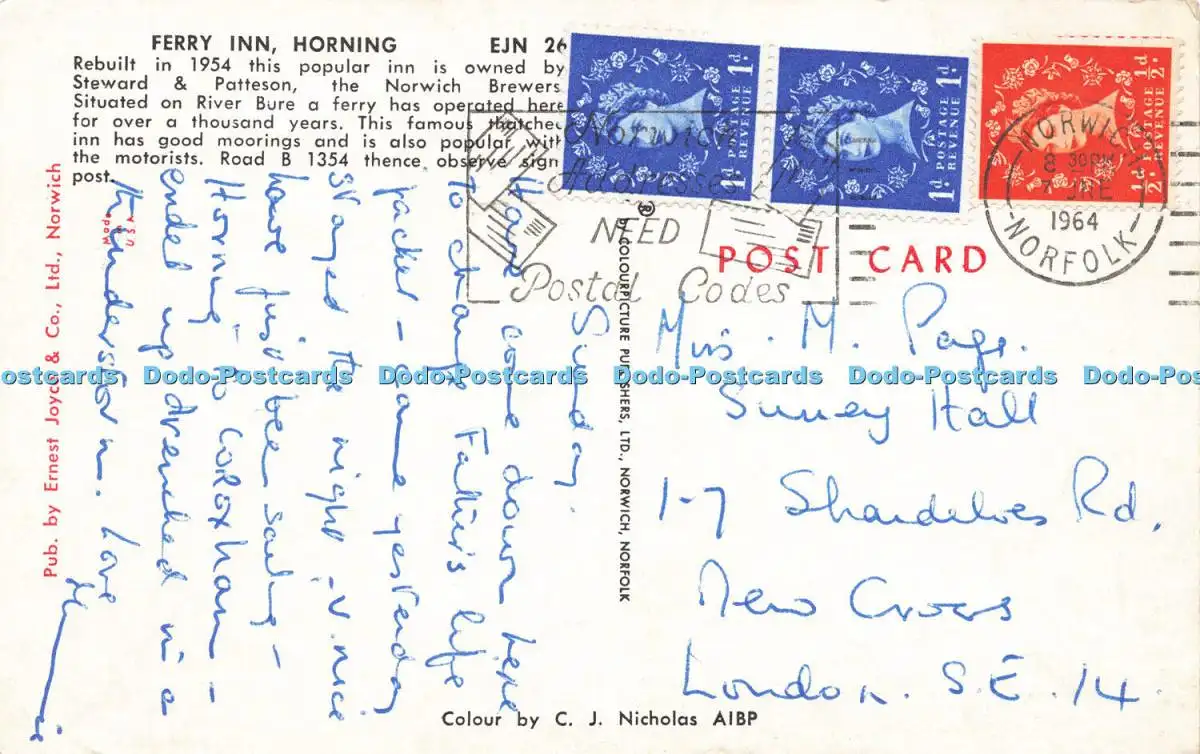 FERRY INN, HORNING EJN 26
Rebuilt in 1954 this popular inn is owned by
Steward & Patteson, the Norwich Brewers.
Situated on River Bure a ferry has operated here
for over a thousand years. This famous thatched
inn has good moorings and is also popular with
the motorists. Road B 1354 thence observe sign
post.
Pub. by Ernest Joyce & Co., Ltd., Norwich
Made
U.S.A.
POSTAGE REVENUE 1d.
1d. POSTAGE REVENUE 1d.
½d. POSTAGE REVENUE ½d.
Norwich
Addresses
NEED
Postal Codes
NORWICH
8 30PM
7 JNE
1964
NORFOLK
POST CARD
® by COLOURPICTURE PUBLISHERS, LTD., NORWICH, NORFOLK
Sunday.
Have come down here
to change Father's life
packet - came yesterday
stayed the night - v. nice
have just been sailing -
Horning to Coroxham -
ended up drenched in a
thunderstorm. Love
Miss. M. Page.
Surrey Hall
1-7 Shardeloes Rd.
New Cross
London. S.E.14.
Colour by C. J. Nicholas AIBP
ostcards Dodo-Postcards Dodo-Postcards Dodo-Postcards Dodo-Postcards Dodo-Postc